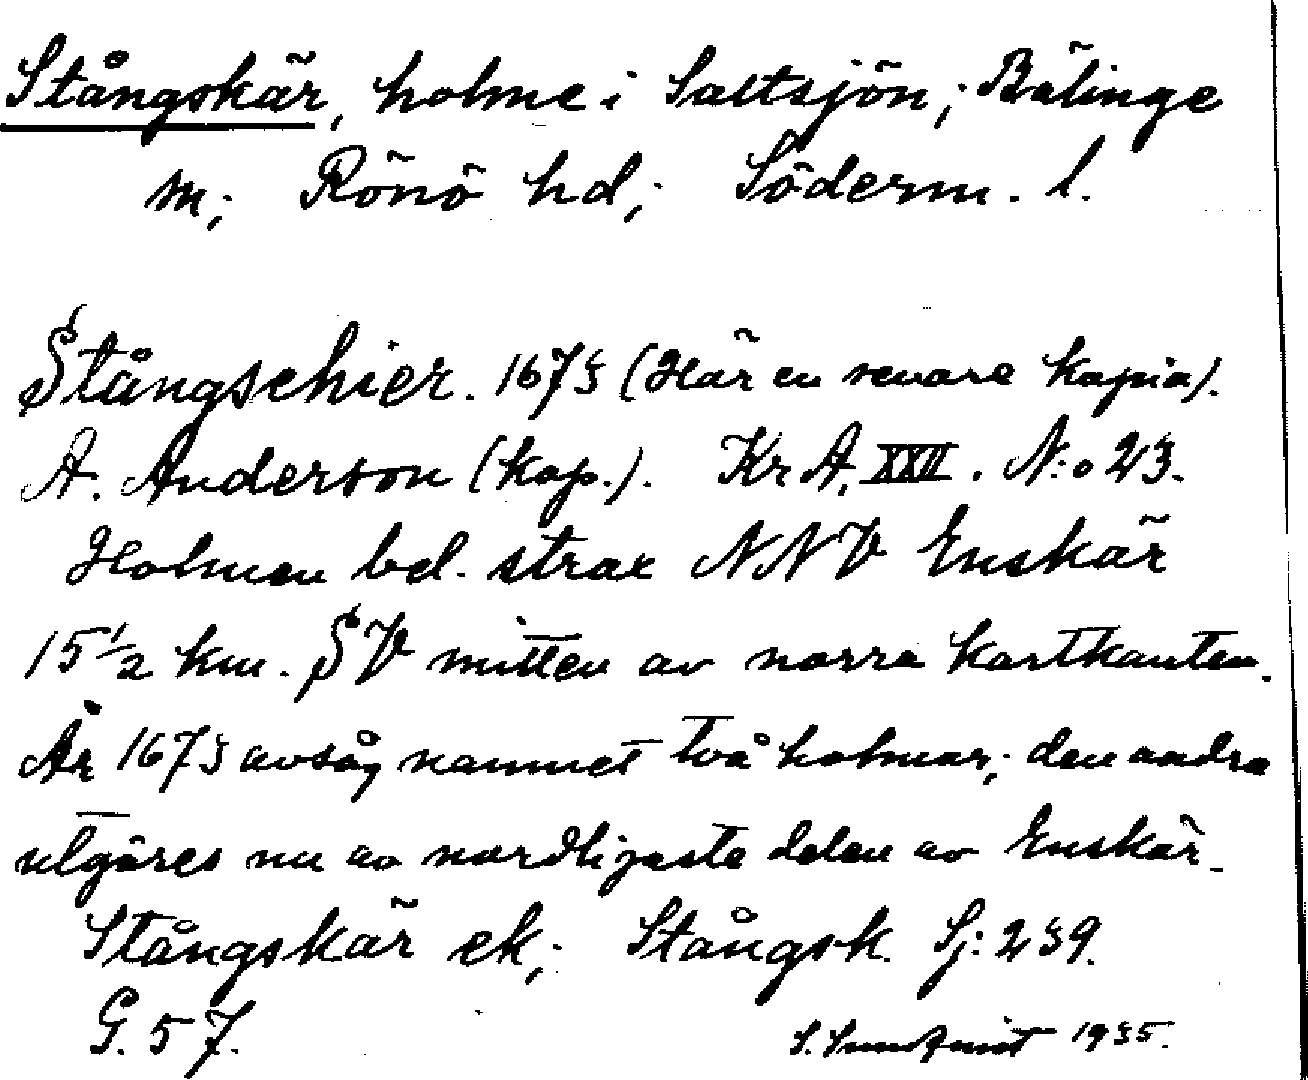 Stångskär, holme i Saltsjön; Bälinge
sn; Rönö hd; Söderm. l.
Stångschier. 1673 (Här en senare kopia).
A. Anderson (kop.). Kr A, XXII. N:o 23.
Holmen bel. strax NNV Enskär
15 1/2 km. SV mitten av norra kartkanten.
År 1673 avsåg namnet två holmar; den andra
utgöres nu av nordligaste delen av Enskär.
Stångskär ek; Stångsk. Sj: 239.
G. 57.
S. Sundquist 1935.